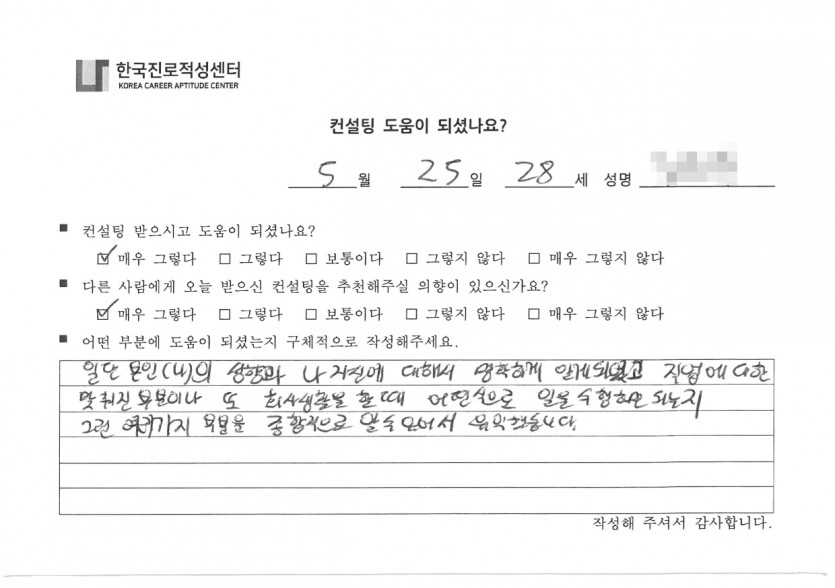 한국진로적성센터
KOREA CAREER APTITUDE CENTER
컨설팅 도움이 되셨나요?
5 월 25 일 28 세 성명
■ 컨설팅 받으시고 도움이 되셨나요?
☑ 매우 그렇다 □ 그렇다 □ 보통이다 □ 그렇지 않다 □ 매우 그렇지 않다
■ 다른 사람에게 오늘 받으신 컨설팅을 추천해주실 의향이 있으신가요?
☑ 매우 그렇다 □ 그렇다 □ 보통이다 □ 그렇지 않다 □ 매우 그렇지 않다
■ 어떤 부분에 도움이 되었는지 구체적으로 작성해주세요.
일단 본인(나)의 성향과 나 자신에 대해서 명확하게 알게되었고 직업에 대한
맞춰진 부분이나 또 회사생활을 할 때 어떤식으로 일을 수행하면 되는지
그런 여러가지 부분을 종합적으로 알 수 있어서 유익했습니다.
작성해 주셔서 감사합니다.